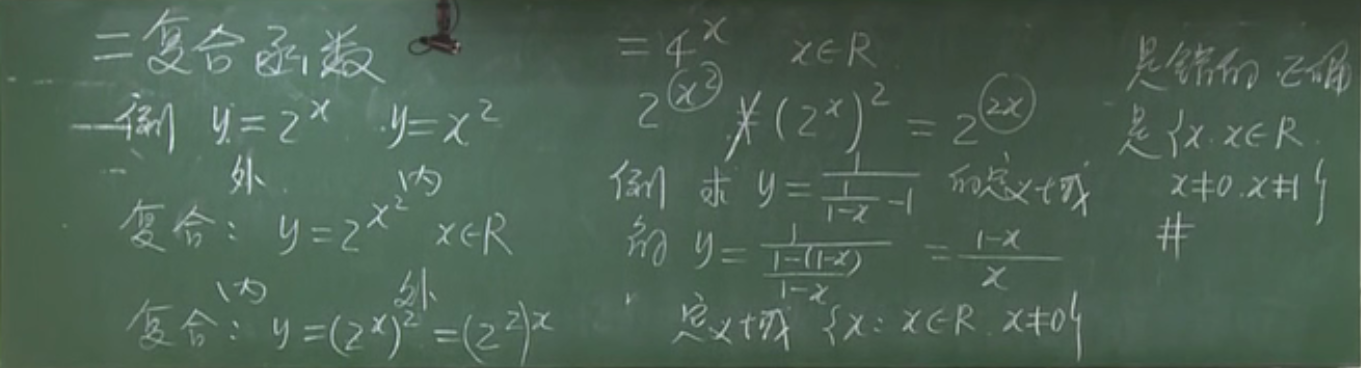 二复合函数
例 y=2^x y=x^2
外 内
复合: y=2^{x^2} x∈R
内 外
复合: y=(2^x)^2=(2^2)^x
=4^x x∈R
2^{x^2}≠(2^x)^2=2^{2x}
例 求 y=\frac{1}{\frac{1}{1-x}-1} 的定义域
解 y=\frac{1}{\frac{1-(1-x)}{1-x}}=\frac{1-x}{x}
定义域 {x: x∈R. x≠0}
是错的.正确
是{x.x∈R.
x≠0.x≠1}
#